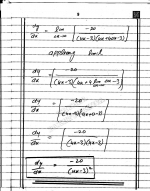 dy/dx = lim Δx→0 [-20 / (4x-3)(4x+4Δx-3)]
applying limit
dy/dx = [-20 / (4x-3)(4x+4 lim Δx→0 Δx-3)]
dy/dx = [-20 / (4x-3)(4x+0-3)]
dy/dx = [-20 / (4x-3)(4x-3)]
dy/dx = -20 / (4x-3)²